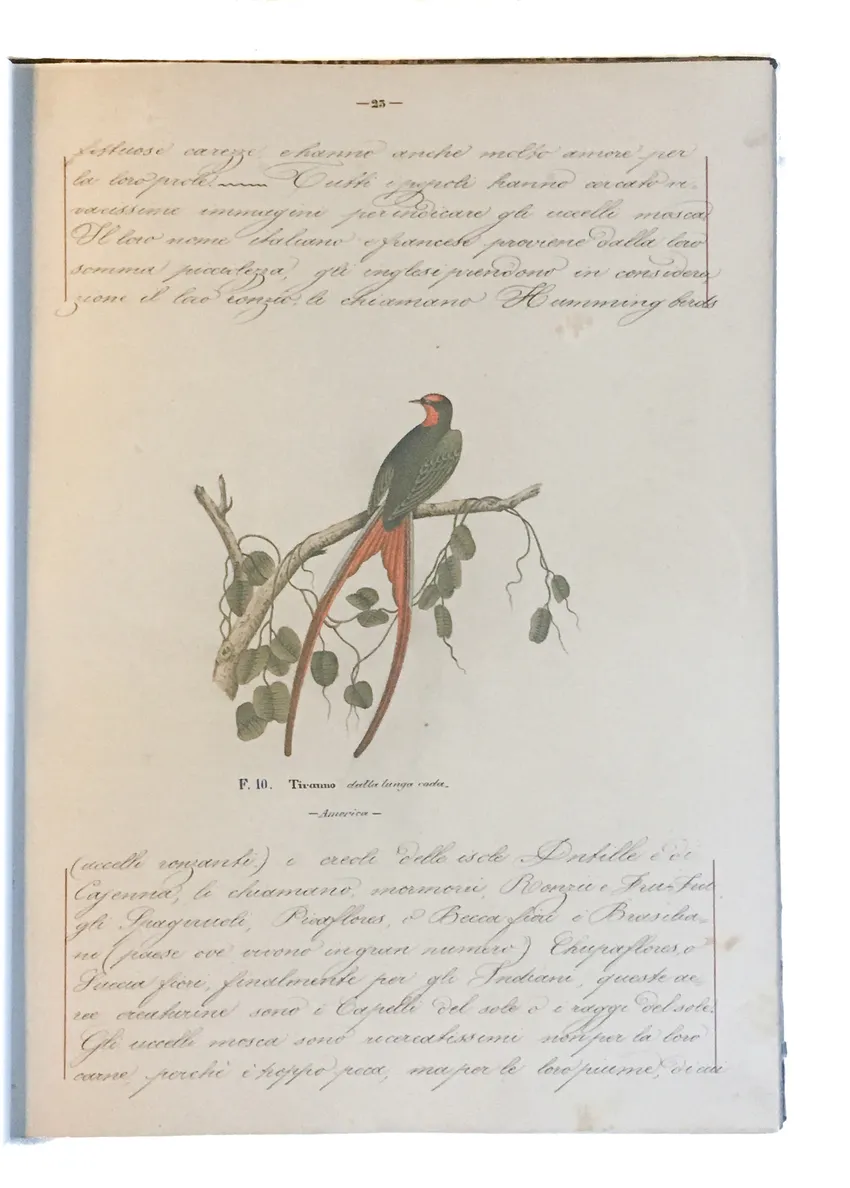 — 25 —
festuose carezze, e hanno anche molto amore per
la loro prole. Tutti i popoli hanno cercato vi-
vacissime immagini per indicare gli uccelli mosca
Il loro nome italiano e francese proviene dalla loro
somma piccolezza, gli inglesi prendono in considera,
zione il loro ronzio, le chiamano Humming birds
F. 10. Tiranno dalla lunga coda.
— America —
(uccelli ronzanti) i creoli delle isole Antille e di
Cajenna, le chiamano, mormorii, Ronzii e Fru-Fru
gli Spagnuoli, Picaflores, o Becca fiori i Brasilia-
ni (paese ove vivono in gran numero) Chupaflores, o
Succia fiori, finalmente per gli Indiani, queste ae-
ree creaturine sono i Capelli del sole o i raggi del sole.
Gli uccelli mosca sono ricercatissimi non per la loro
carne, perchè è troppo poca, ma per le loro piume, di cui